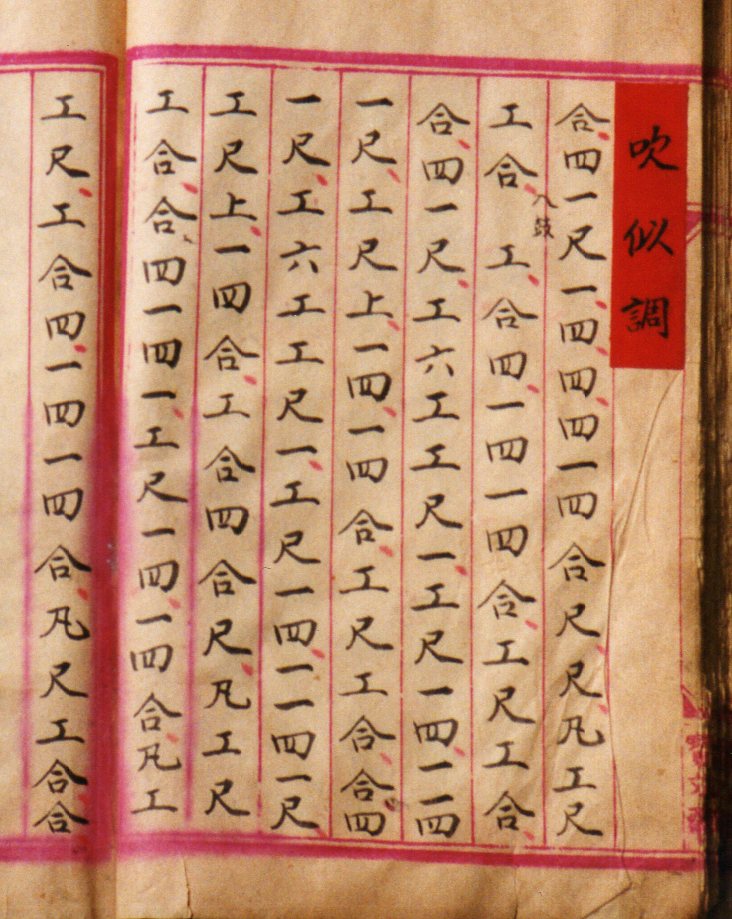 吹似調
合四一尺一四四四一四合尺尺凡工尺
工合 八鼓 工合四一四一四合工尺工合
合四一尺工六工工尺一工尺一四一一四
一尺工尺上一四一四合工尺工合合四
一尺工六工工尺一工尺一四一一四一尺
工尺上一四合工合四合尺凡工尺
工合合四一四一工尺一四一四合凡工
工尺工合四一四一四合凡尺工合合